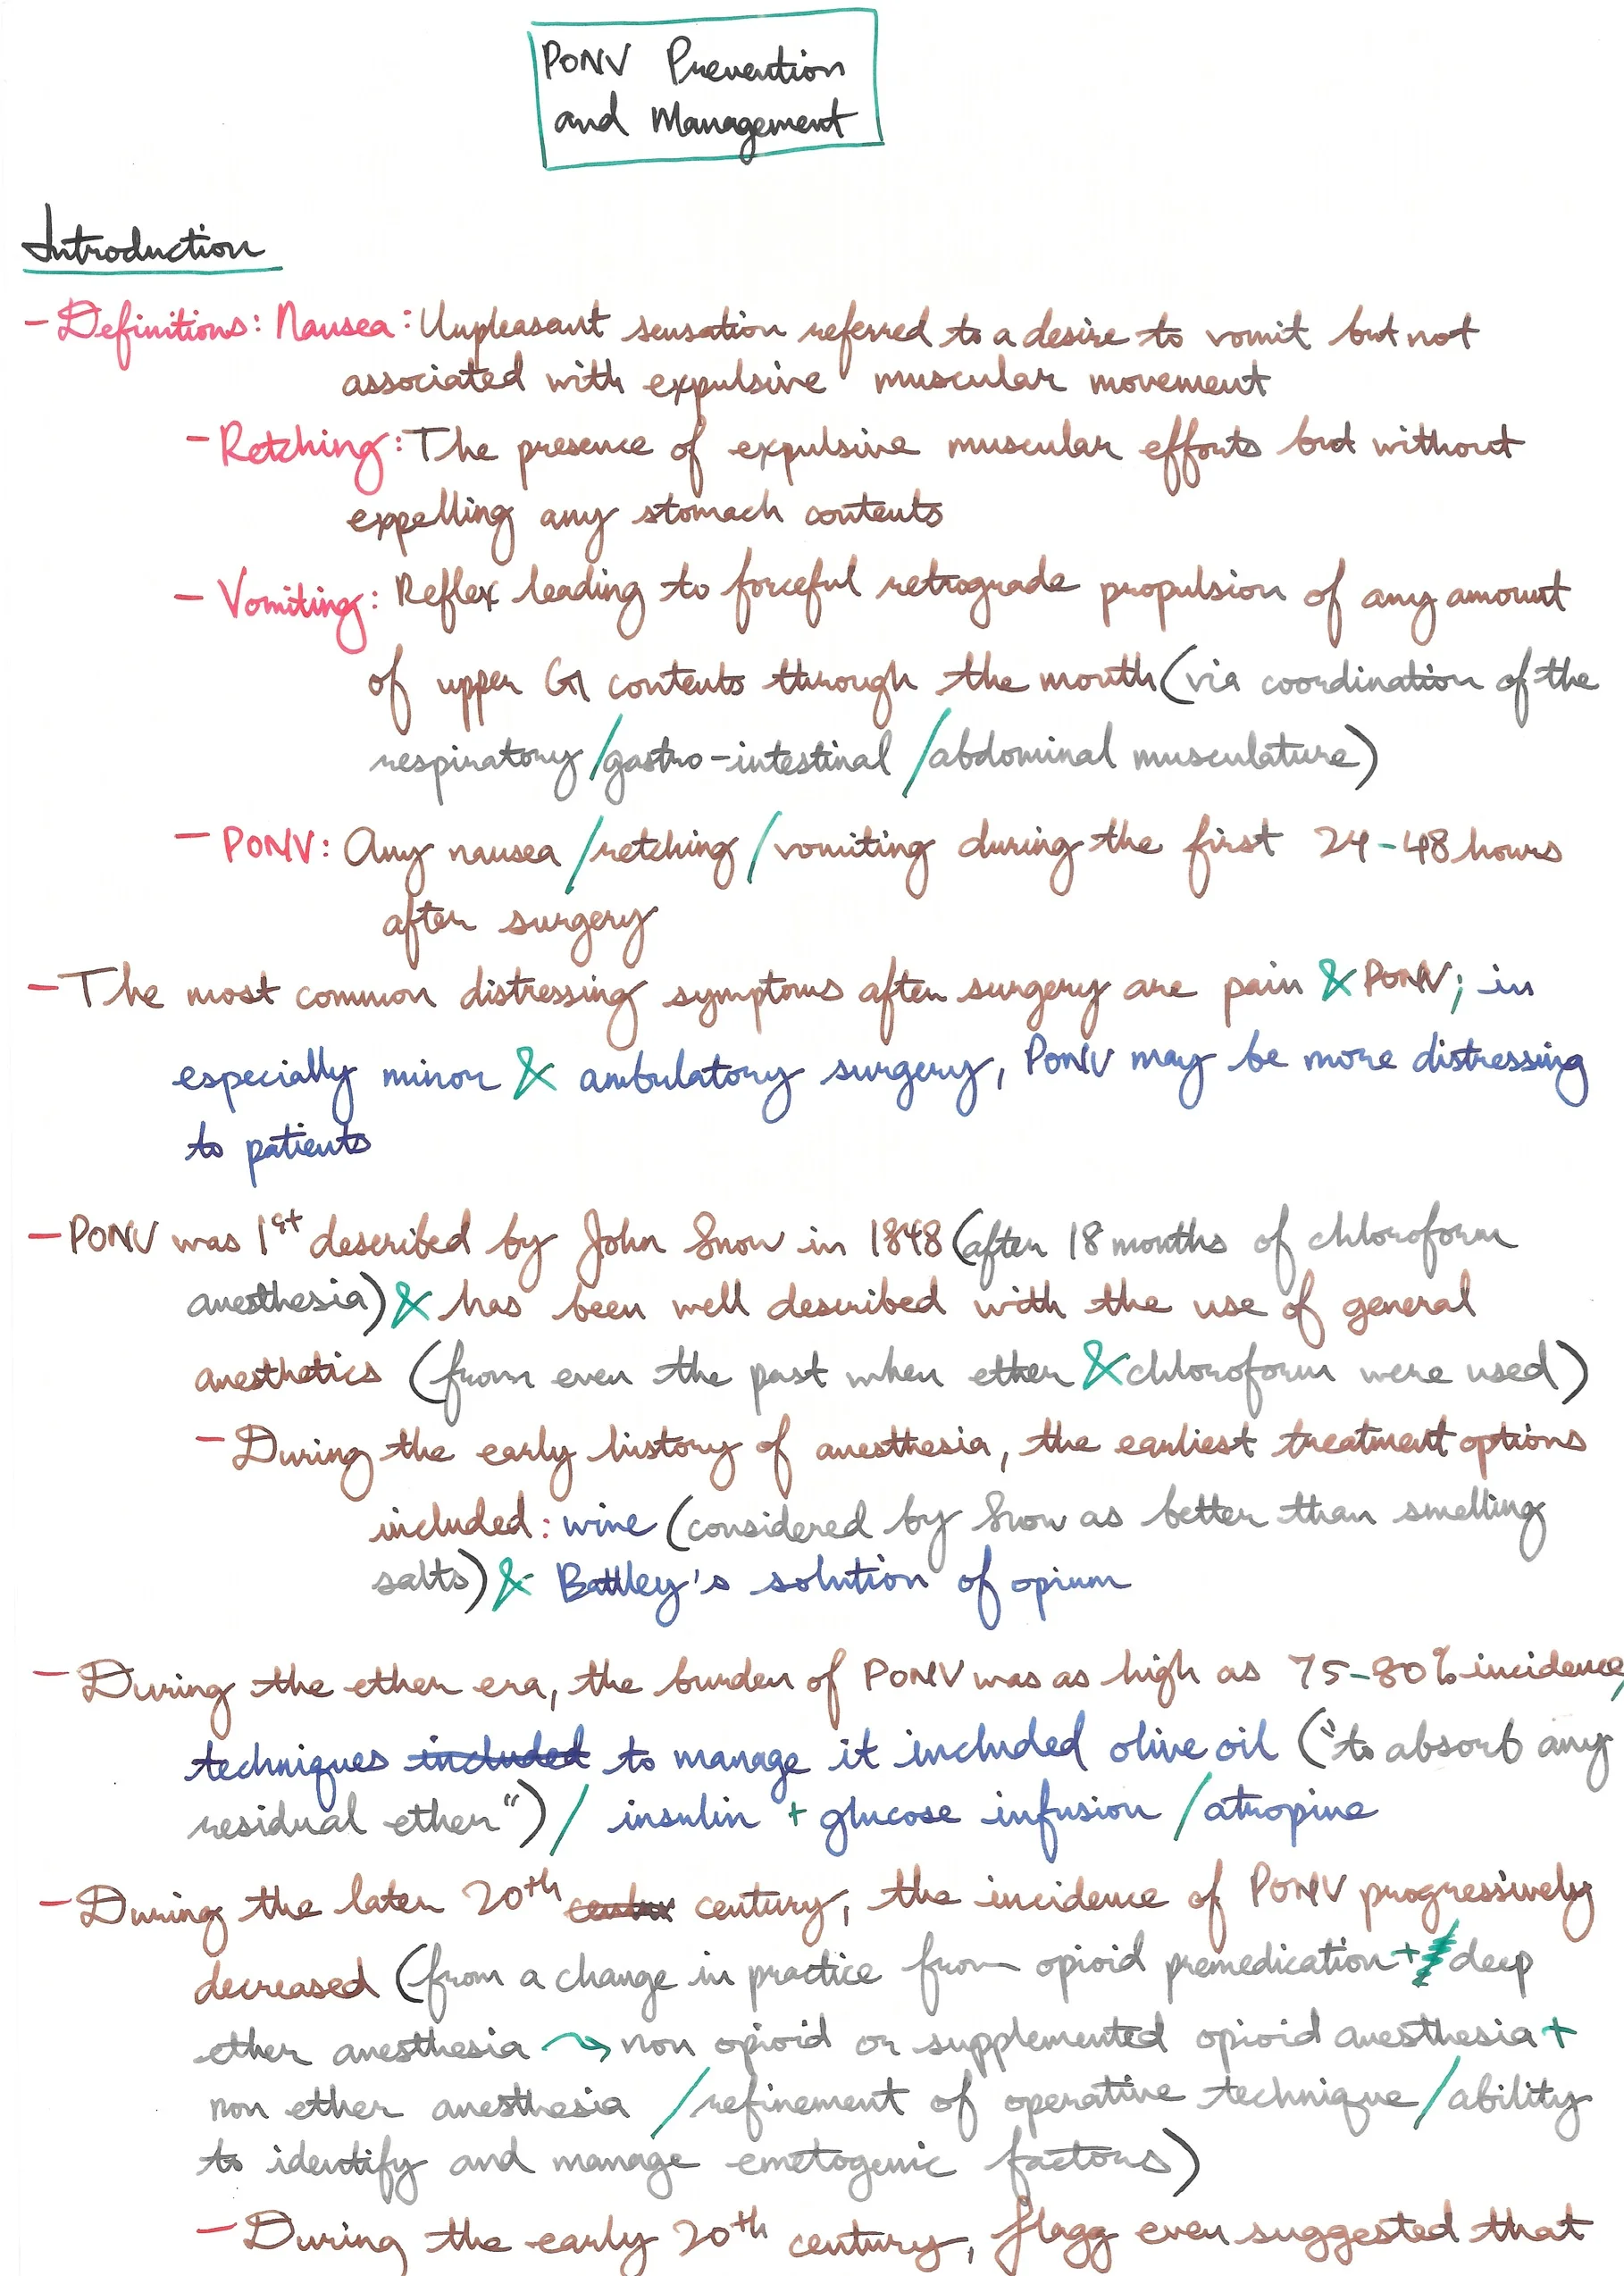 PONV Prevention
and Management
Introduction
- Definitions: Nausea: Unpleasant sensation referred to a desire to vomit but not
associated with expulsive muscular movement
- Retching: The presence of expulsive muscular efforts but without
expelling any stomach contents
- Vomiting: Reflex leading to forceful retrograde propulsion of any amount
of upper GI contents through the mouth (via coordination of the
respiratory / gastro-intestinal / abdominal musculature)
- PONV: Any nausea / retching / vomiting during the first 24-48 hours
after surgery
- The most common distressing symptoms after surgery are pain & PONV; in
especially minor & ambulatory surgery, PONV may be more distressing
to patients
- PONV was 1st described by John Snow in 1848 (after 18 months of chloroform
anesthesia) & has been well described with the use of general
anesthetics (from even the past when ether & chloroform were used)
- During the early history of anesthesia, the earliest treatment options
included: wine (considered by Snow as better than smelling
salts) & Battley's solution of opium
- During the ether era, the burden of PONV was as high as 75-80% incidence,
techniques included to manage it included olive oil ("to absorb any
residual ether") / insulin + glucose infusion / atropine
- During the later 20th century, the incidence of PONV progressively
decreased (from a change in practice from opioid premedication + deep
ether anesthesia → non opioid or supplemented opioid anesthesia +
non ether anesthesia / refinement of operative technique / ability
to identify and manage emetogenic factors)
- During the early 20th century, Flagg even suggested that